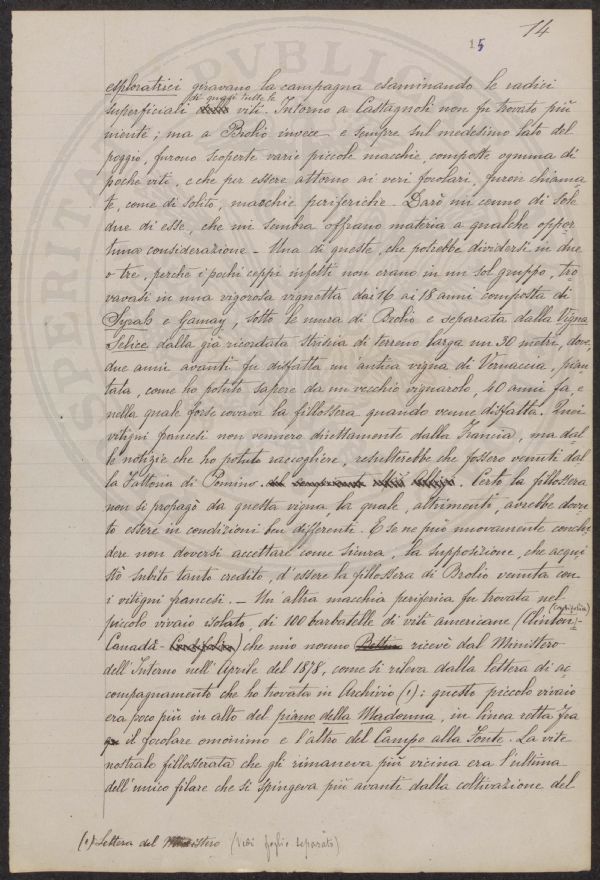 14
15
esploratrici giravano la campagna esaminando le radici
superficiali di quasi tutte le viti. Intorno a Castagnoli non fu trovato più
niente; ma a Brolio invece e sempre sul medesimo lato del
poggio, furono scoperte varie piccole macchie, composte ognuna di
poche viti, e che per essere attorno ai veri focolari, furon chiama-
te, come di solito, macchie periferiche. Darò un cenno di sole
due di esse, che mi sembra offrano materia a qualche oppor-
tuna considerazione - Una di queste, che potrebbe dividersi in due
o tre, perchè i pochi ceppi infetti non erano in un sol gruppo, tro-
vavasi in una vigorosa vignetta dai 16 ai 18 anni composta di
Syrah e Gamay, sotto le mura di Brolio e separata dalla Vigna
Selice dalla già ricordata striscia di terreno larga un 30 metri, dove,
due anni avanti fu disfatta un'antica vigna di Vernaccia, pian-
tata, come ho potuto sapere da un vecchio vignarolo, 40 anni fa, e
nella quale forse covava la fillossera quando venne disfatta. Quei
vitigni francesi non vennero direttamente dalla Francia, ma dal-
le notizie che ho potuto raccogliere, resulterebbe che fossero venuti dal-
la Fattoria di Pomino. Certo la fillossera
non si propagò da questa vigna, la quale, altrimenti, avrebbe dovu-
to essere in condizioni ben differenti. E se ne può nuovamente conclu-
dere non doversi accettare come sicura, la supposizione, che acqui-
stò subito tanto credito, d'essere la fillossera di Brolio venuta con
i vitigni francesi. - Un'altra macchia periferica fu trovata nel
piccolo vivaio isolato, di 100 barbatelle di viti americane (Clinton-
Canadà - (Cordifolia) che mio nonno ricevè dal Ministero
dell'Interno nell'Aprile del 1878, come si rileva dalla lettera di ac-
compagnamento che ho trovata in Archivio (1): questo piccolo vivaio
era poco più in alto del piano della Madonna, in linea retta fra
il focolare omonimo e l'altro del Campo alla Fonte. La vite
nostrale fillosserata che gli rimaneva più vicina era l'ultima
dell'unico filare che si spingeva più avanti dalla coltivazione del
(1) Lettera del Ministero (Vedi foglio separato)